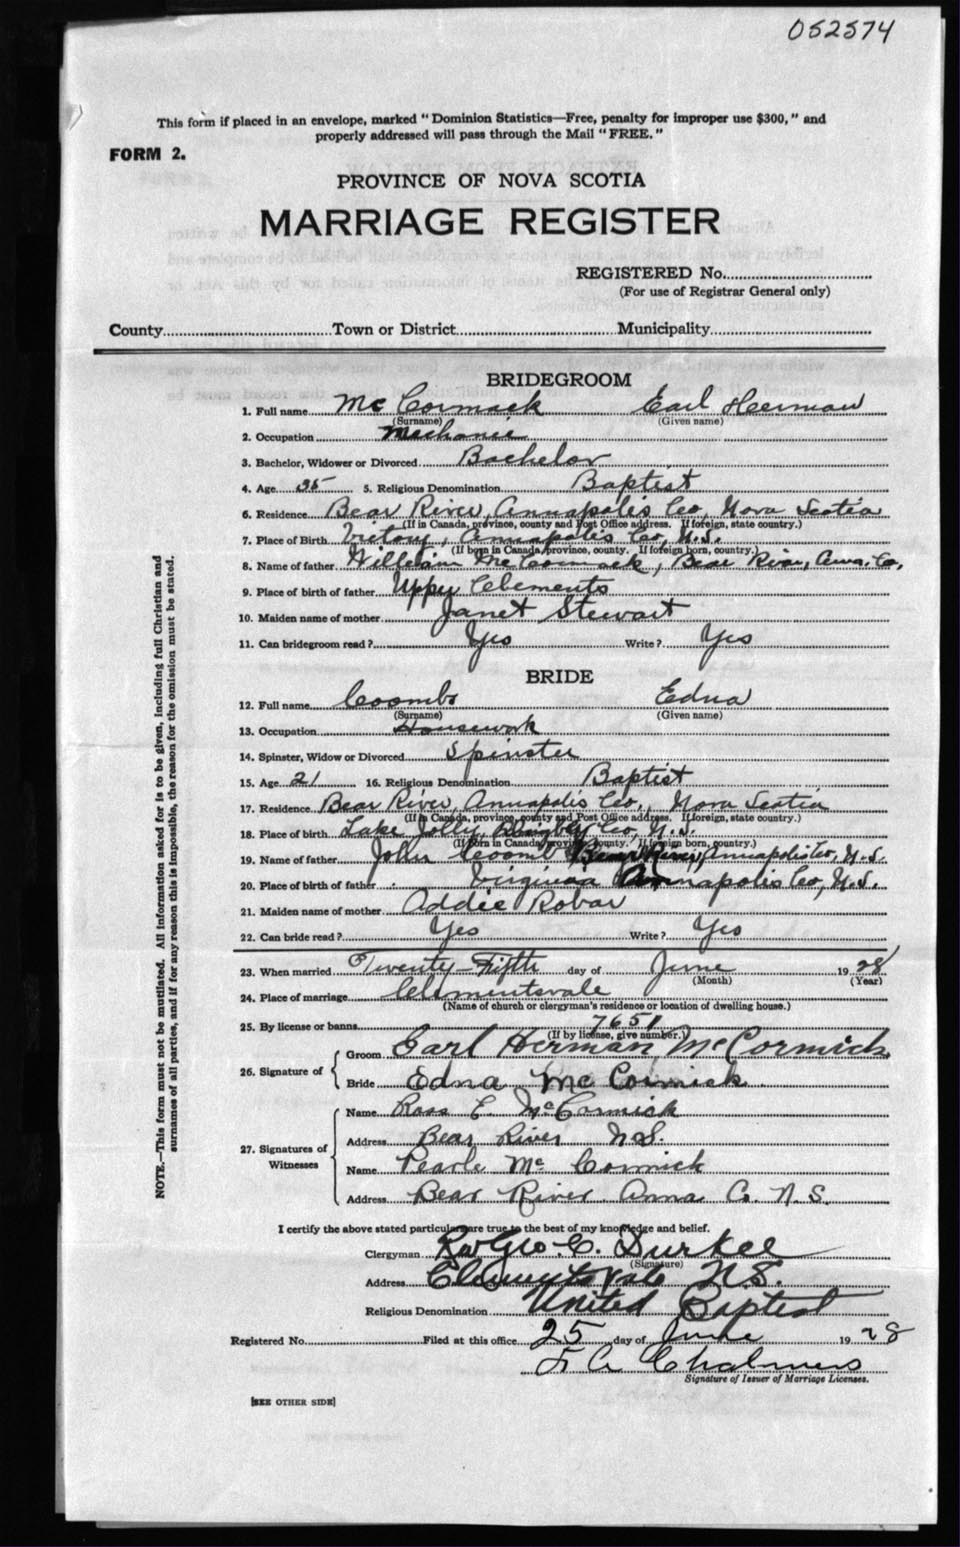 052574
This form if placed in an envelope, marked "Dominion Statistics—Free, penalty for improper use $300," and
properly addressed will pass through the Mail "FREE."
FORM 2.
PROVINCE OF NOVA SCOTIA
MARRIAGE REGISTER
REGISTERED No.
(For use of Registrar General only)
County Town or District Municipality
BRIDEGROOM
1. Full name Mc Cormack Earl Herman
(Surname) (Given name)
2. Occupation Mechanic
3. Bachelor, Widower or Divorced Bachelor
4. Age 5. Religious Denomination Baptist
6. Residence Bear River, Annapolis Co, Nova Scotia
(If in Canada, province, county and Post Office address. If foreign, state country.)
7. Place of Birth Victory, Annapolis Co, N.S.
(If born in Canada, province, county. If foreign born, country.)
8. Name of father William Mc Cormack, Bear River, Anna. Co,
9. Place of birth of father Uppy Clements
10. Maiden name of mother Janet Stewart
11. Can bridegroom read? Yes Write? Yes
BRIDE
12. Full name Coombs Edna
(Surname) (Given name)
13. Occupation Housework
14. Spinster, Widow or Divorced Spinster
15. Age 21 16. Religious Denomination Baptist
17. Residence Bear River, Annapolis Co, Nova Scotia
(If in Canada, province, county and Post Office address. If foreign, state country.)
18. Place of birth Lake Jolly, Digby Co, N.S.
(If born in Canada, province, county. If foreign born, country.)
19. Name of father John Coomb Bear River, Annapolis Co, N.S.
20. Place of birth of father Virginia Annapolis Co, N.S.
21. Maiden name of mother Addie Robar
22. Can bride read? Yes Write? Yes
23. When married Twenty-Fifth day of June 1928
(Month) (Year)
24. Place of marriage Clementsvale
(Name of church or clergyman's residence or location of dwelling house.)
25. By license or banns 7651
(If by license, give number.)
26. Signature of
Groom Earl Herman McCormick
Bride Edna Mc Cormick
27. Signatures of Witnesses
Name Ross E. McCormick
Address Bear River N.S.
Name Pearle Mc Cormick
Address Bear River Anna Co. N.S.
I certify the above stated particulars are true to the best of my knowledge and belief.
Clergyman Rev Geo. C. Durkee
(Signature)
Address Clementsvale N.S.
Religious Denomination United Baptist
Registered No. Filed at this office 25 day of June 1928
Chalmers
Signature of Issuer of Marriage Licenses.
[SEE OTHER SIDE]
NOTE.—This form must not be mutilated. All information asked for is to be given, including full Christian and
surnames of all parties, and if for any reason this is impossible, the reason for the omission must be stated.